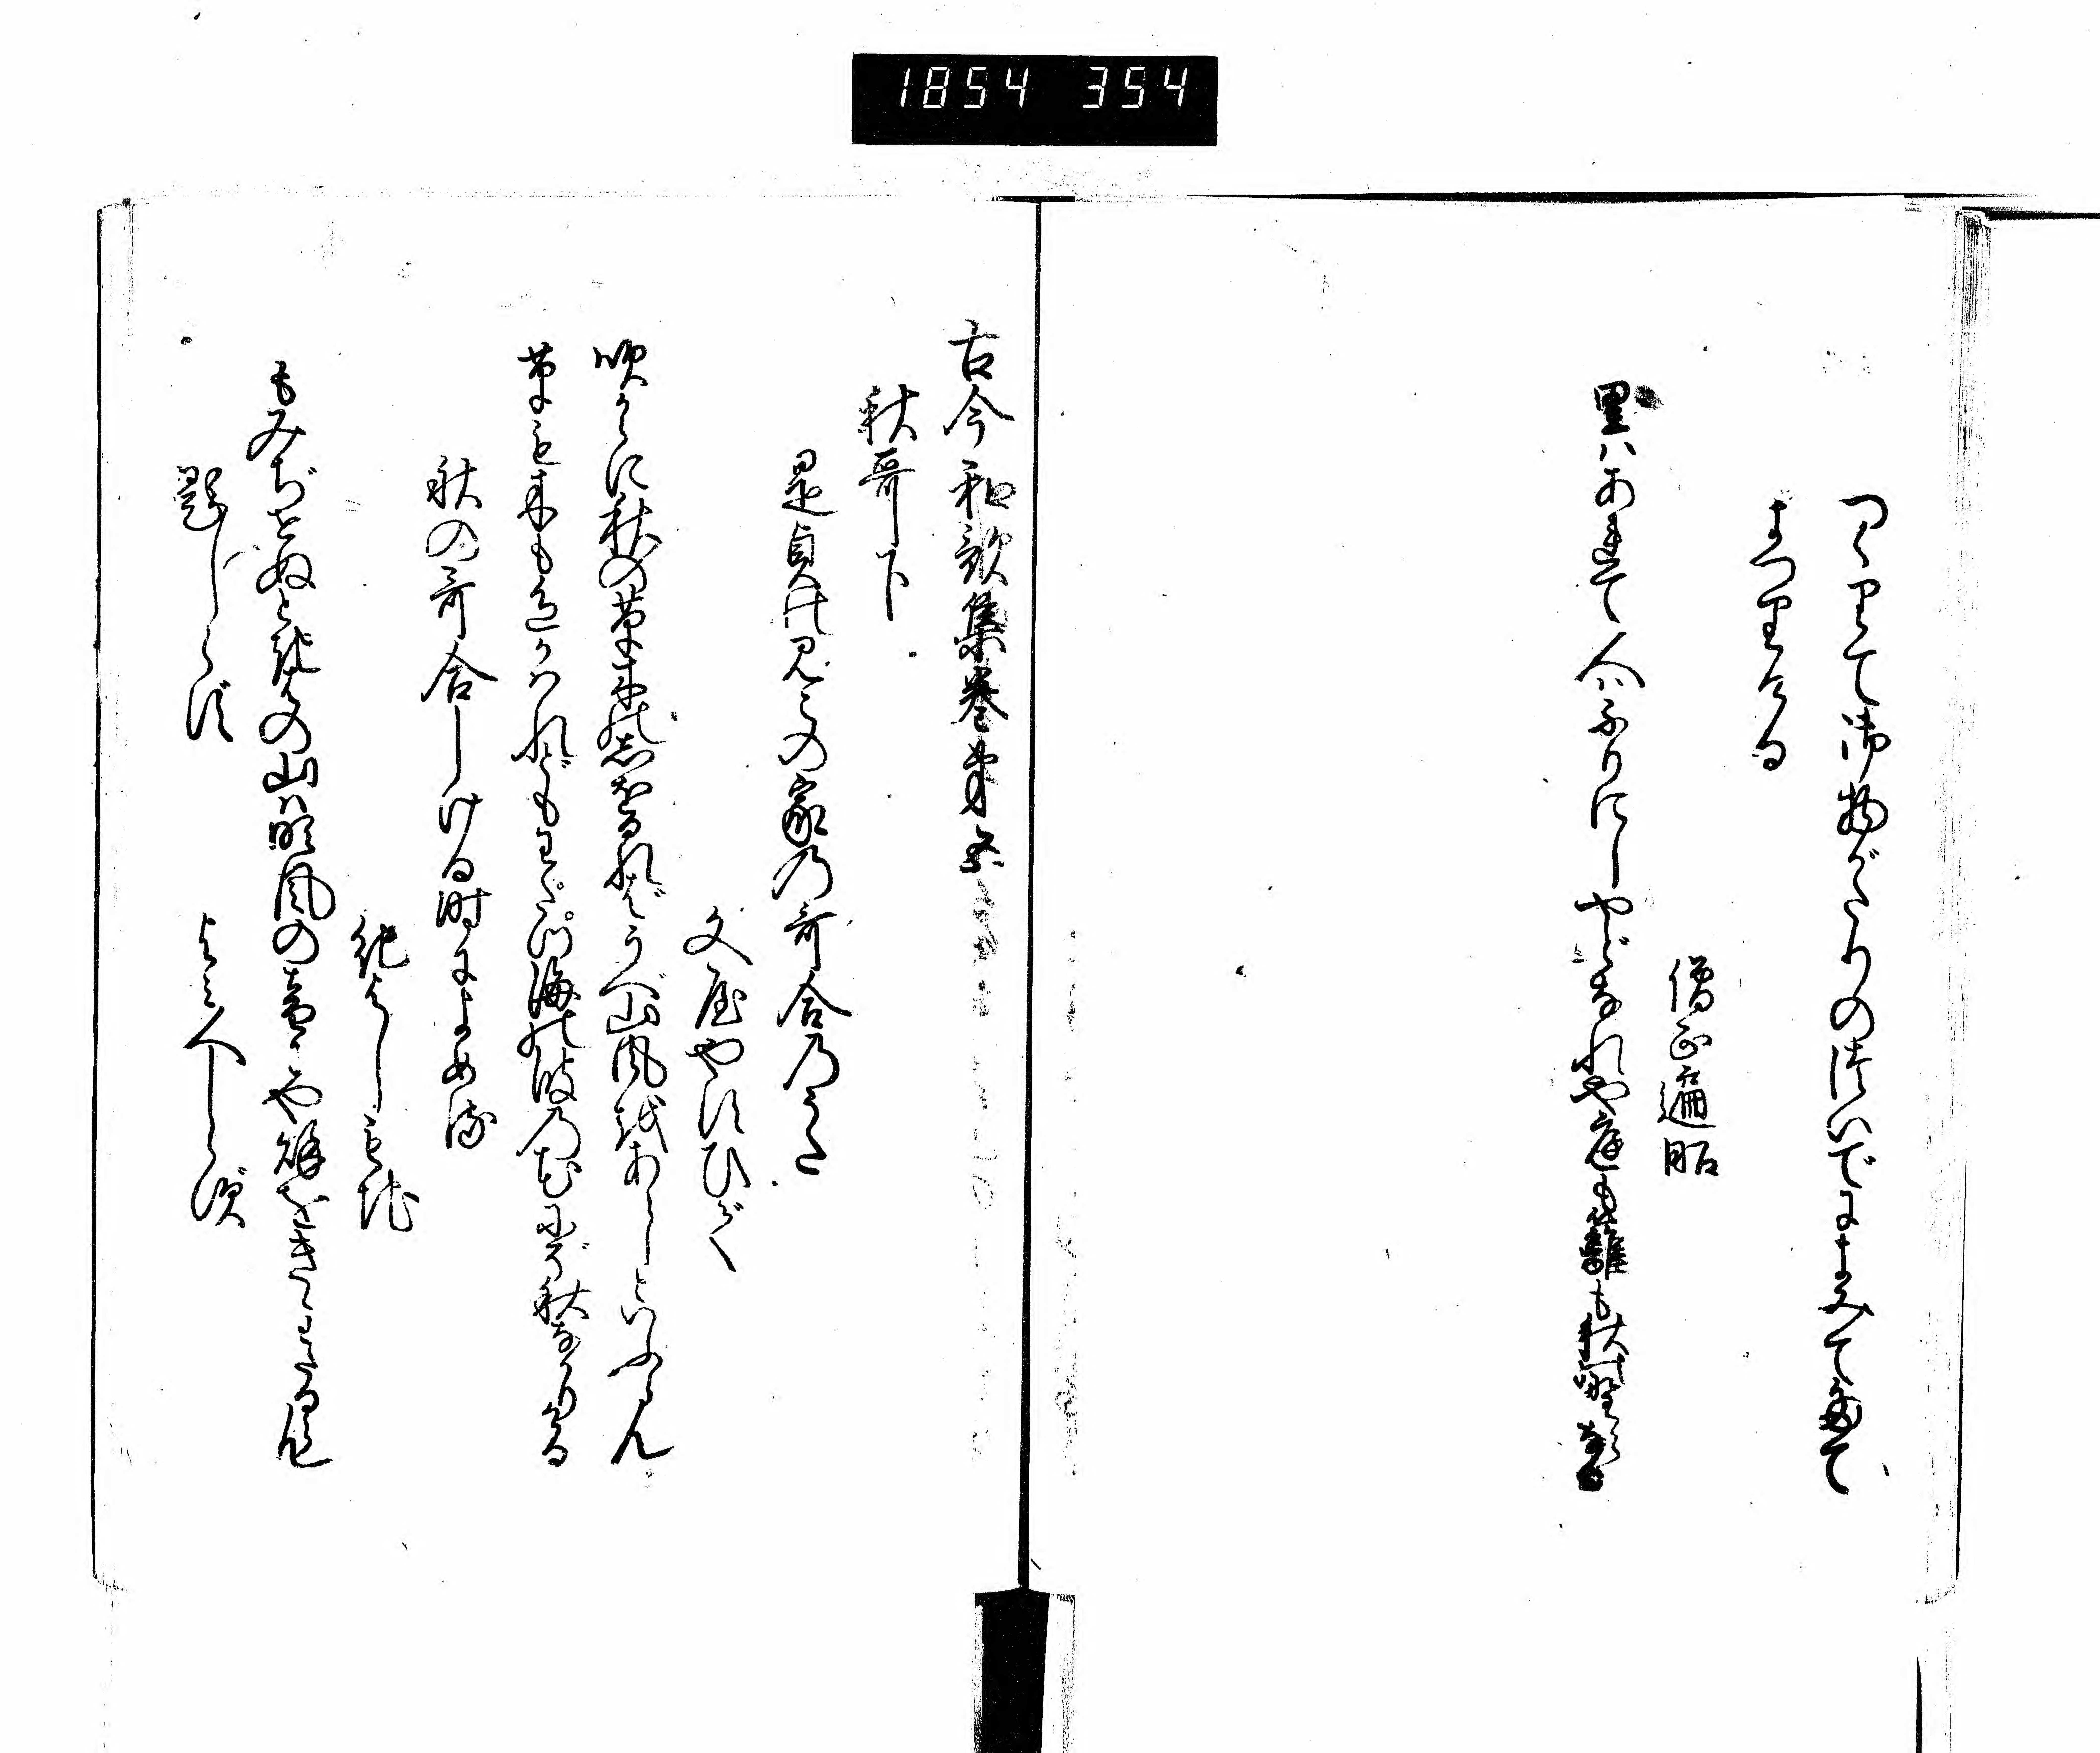 1854 354
つくりて御物がたりのついでによみて奉て
まつりける
僧正遍昭
里はあれて人はふりにしやどなれや庭も籬も秋の野らなる
古今和歌集巻第五
秋哥下
是貞のみこの家の哥合のうた
文屋やすひで
吹からに秋の草木のしをるればうべ山風をあらしといふらん
草も木も色かはれどもわたつ海の波の花にぞ秋なかりける
秋の哥合しける時によめる
紀よしもち
もみぢせぬときはの山は吹風の音にや秋をきゝわたる覧
題しらず
よみ人しらず